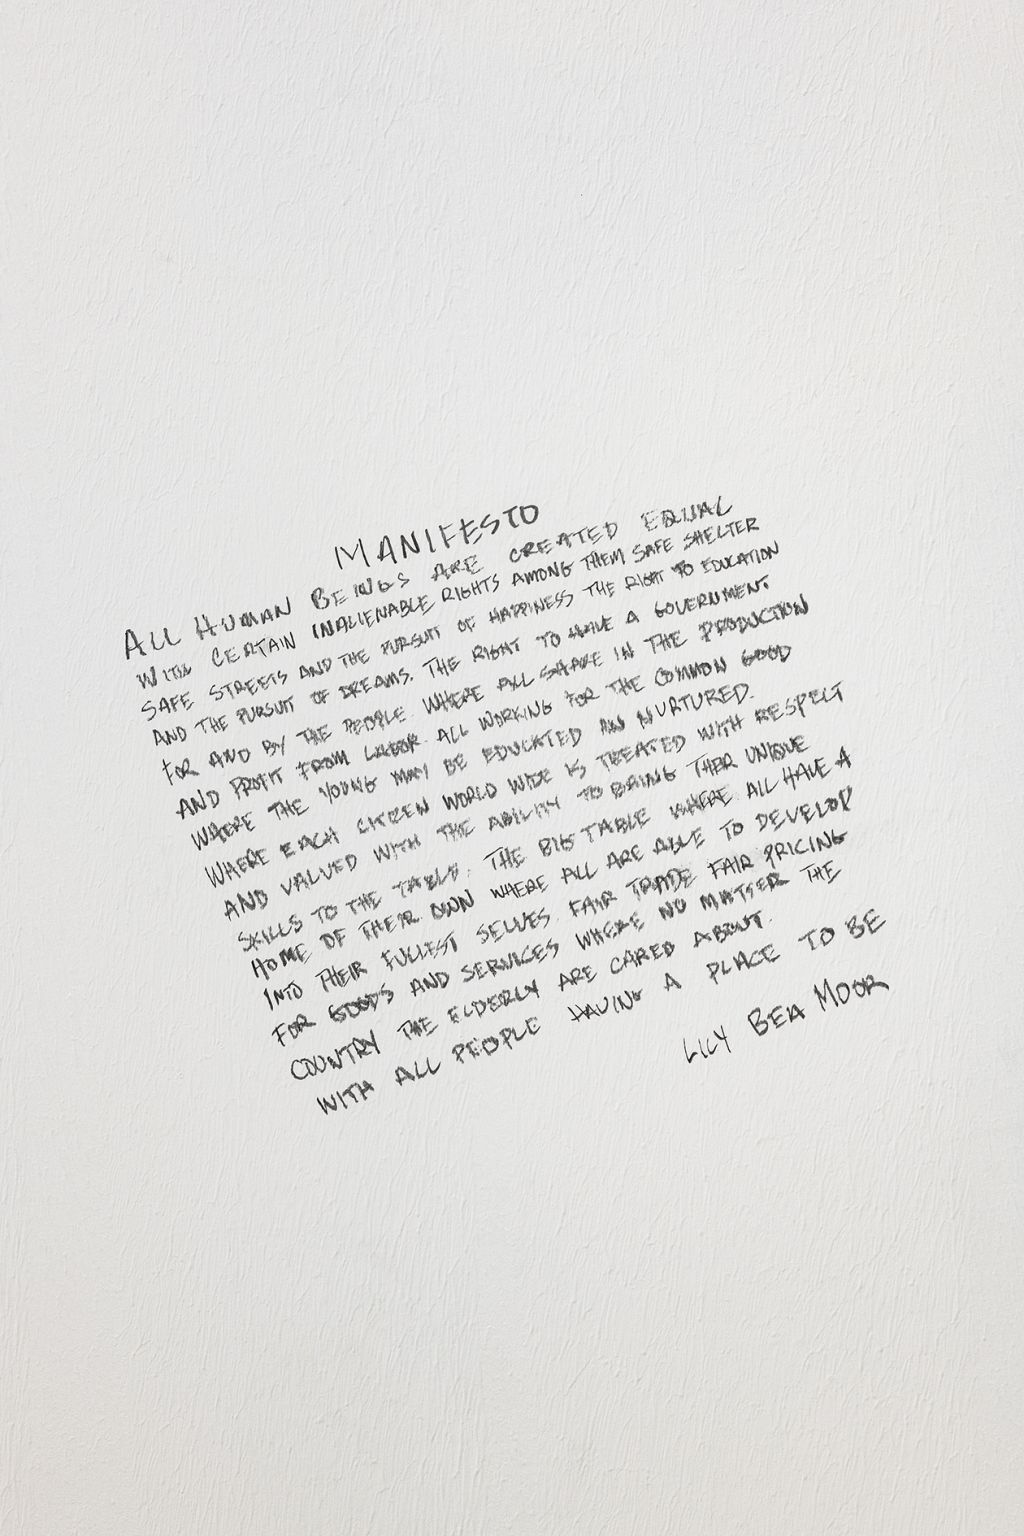 MANIFESTO
ALL HUMAN BEINGS ARE CREATED EQUAL
WITH CERTAIN INALIENABLE RIGHTS AMONG THEM SAFE SHELTER
SAFE STREETS AND THE PURSUIT OF HAPPINESS THE RIGHT TO EDUCATION
AND THE PURSUIT OF DREAMS. THE RIGHT TO HAVE A GOVERNMENT
FOR AND BY THE PEOPLE. WHERE ALL SHARE IN THE PRODUCTION
AND PROFIT FROM LABOR. ALL WORKING FOR THE COMMON GOOD
WHERE THE YOUNG MAY BE EDUCATED AN NURTURED.
WHERE EACH CITIZEN WORLD WIDE IS TREATED WITH RESPECT
AND VALUED WITH THE ABILITY TO BRING THER UNIQUE
SKILLS TO THE TABLE. THE BIG TABLE WHERE ALL HAVE A
HOME OF THEIR OWN WHERE ALL ARE ABLE TO DEVELOP
INTO THEIR FULLEST SELVES. FAIR TRADE FAIR PRICING
FOR GOODS AND SERVICES WHERE NO MATTER THE
COUNTRY THE ELDERLY ARE CARED ABOUT.
WITH ALL PEOPLE HAVING A PLACE TO BE
LILY BEA MOOR